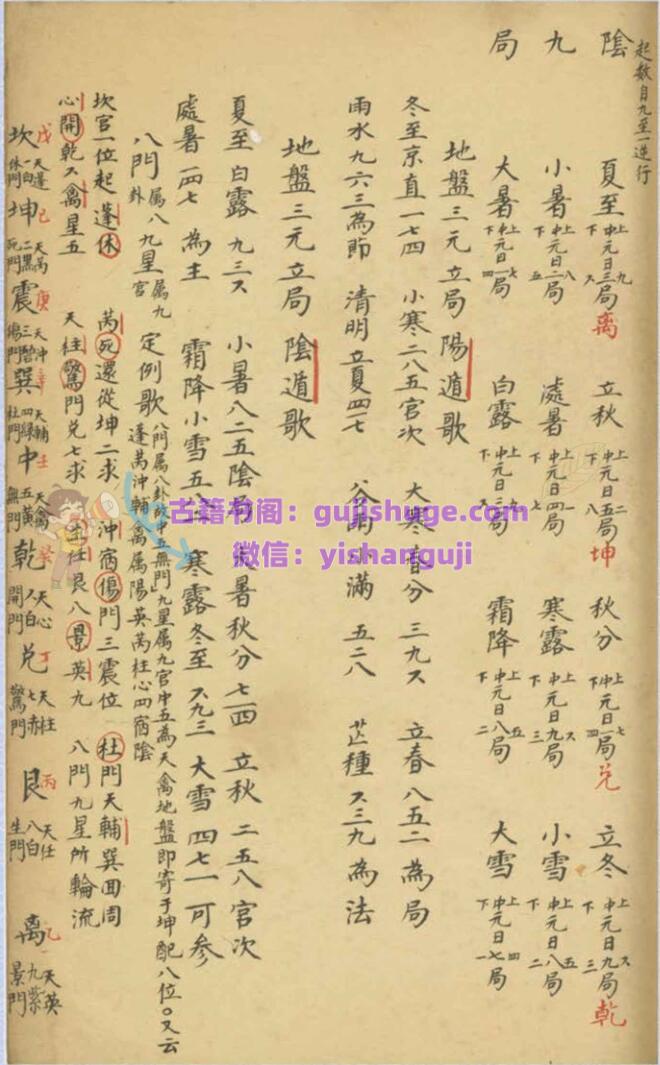 起数自九至一逆行
陰 夏至 上中下元日九三六局 離 立秋 上中下元日二五八局 坤 秋分 上中下元日七一四局 兌 立冬 上中下元日六九三局 乾
九 小暑 上中下元日八二五局 處暑 上中下元日一四七局 寒露 上中下元日六九三局 小雪 上中下元日五八二局
局 大暑 上中下元日七一四局 白露 上中下元日九三六局 霜降 上中下元日五八二局 大雪 上中下元日四七一局
地盤三元立局陽遁歌
冬至京直一七四 小寒二八五宫次 大寒春分三九六 立春八五二為局
雨水九六三為節 清明立夏四一七 小滿五二八 芒種六三九為法
地盤三元立局陰遁歌
夏至白露九三六 小暑八二五 暑秋分七一四 立秋二五八宫次
處暑一四七為主 霜降小雪五八二 寒露冬至六九三 大雪四七一可参
八門属八卦九星属九宫定例歌 八門属八卦故中五無門九星属九宫中五為天禽地盤即寄于坤配八位○又云
蓬芮沖輔禽属陽英芮柱心四宿陰
坎宫一位起蓬休 芮死還從坤二求 沖宿傷門三震位 杜門天輔巽四周
心開乾六禽星五 天柱驚門兌七求 生任艮八景英九 八門九星所輪流
坎 戊 天蓬 一白 休門 坤 己 天芮 二黒 死門 震 庚 天沖 三碧 傷門 巽 辛 天輔 四緑 杜門 中 壬 天禽 五黄 無門 乾 癸 天心 六白 開門 兌 丁 天柱 七赤 驚門 艮 丙 天任 八白 生門 離 乙 天英 九紫 景門
古籍书阁：gujishuge.com
微信：yishanguji